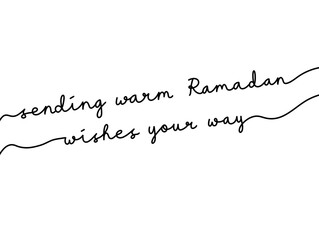 sending warm Ramadan
wishes your way